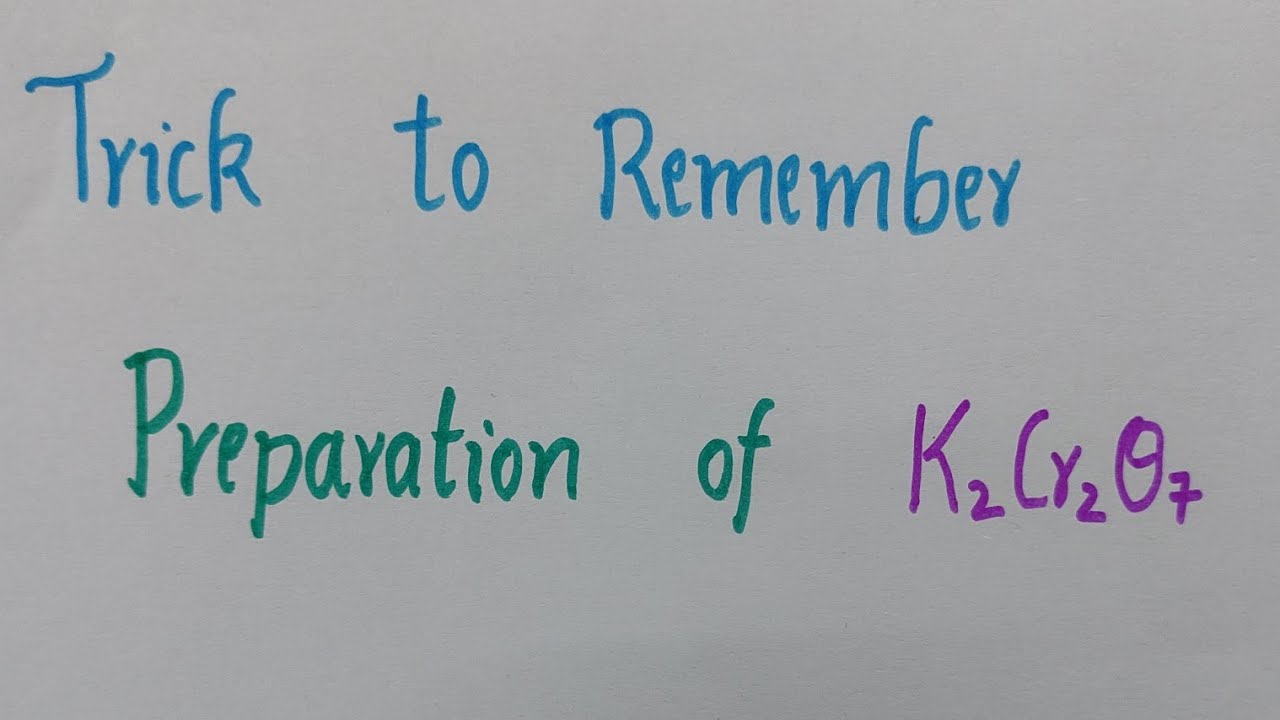 Trick to Remember
Preparation of K₂Cr₂O₇